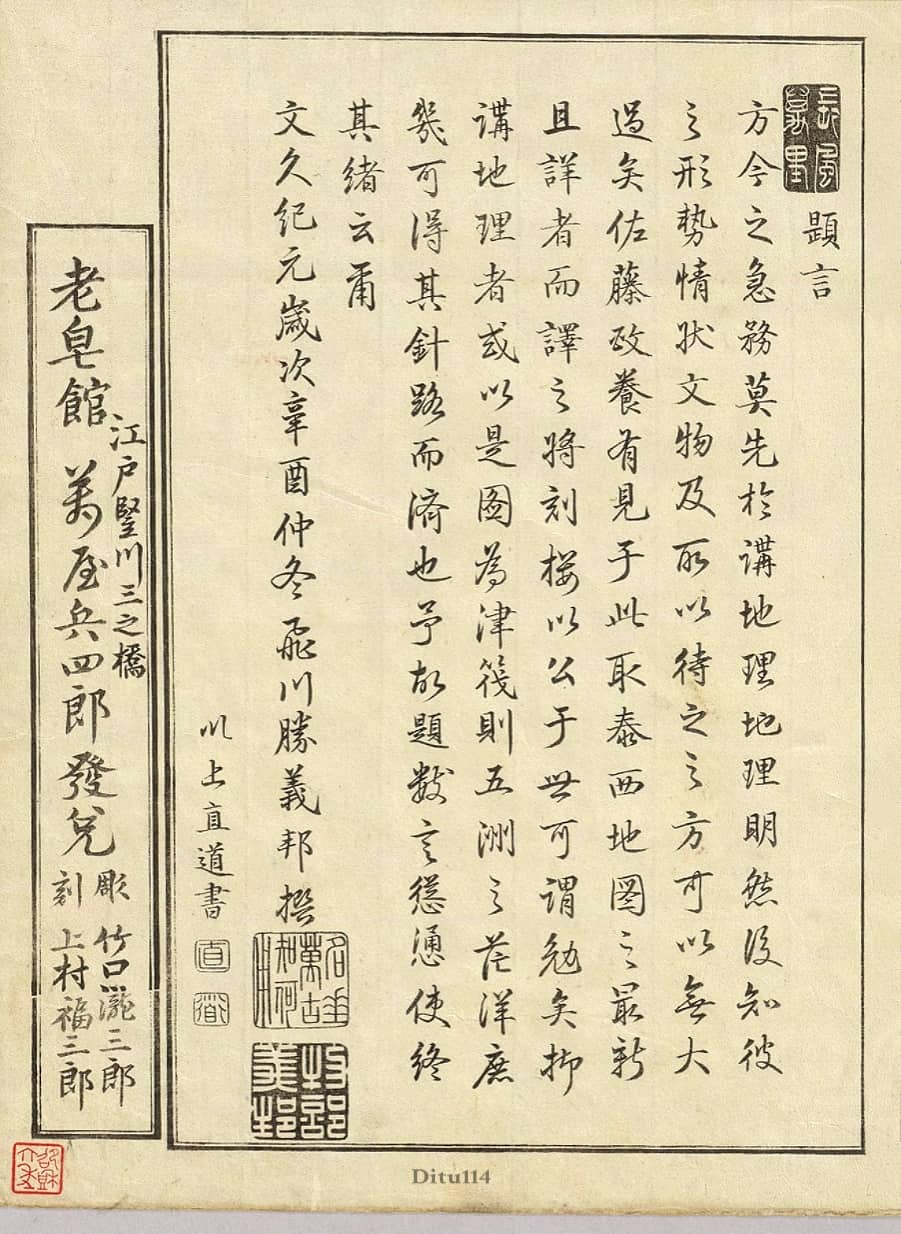 題言
方今之急務莫先於講地理地理明然後知彼
之形勢情狀文物及所以待之之方可以無大
過矣佐藤政養有見于此取泰西地圖之最新
且詳者而譯之將刻梓以公于世可謂勉矣抑
講地理者或以是図為津筏則五洲之茫洋庶
幾可得其針路而済也予故題数言慫慂使終
其緒云爾
文久紀元歳次辛酉仲冬飛川勝義邦撰
川上直道書
直
道
江戸竪川三之橋
老皂館 萬屋兵四郎發兌
彫 竹口瀧三郎
刻 上村福三郎
Ditu114